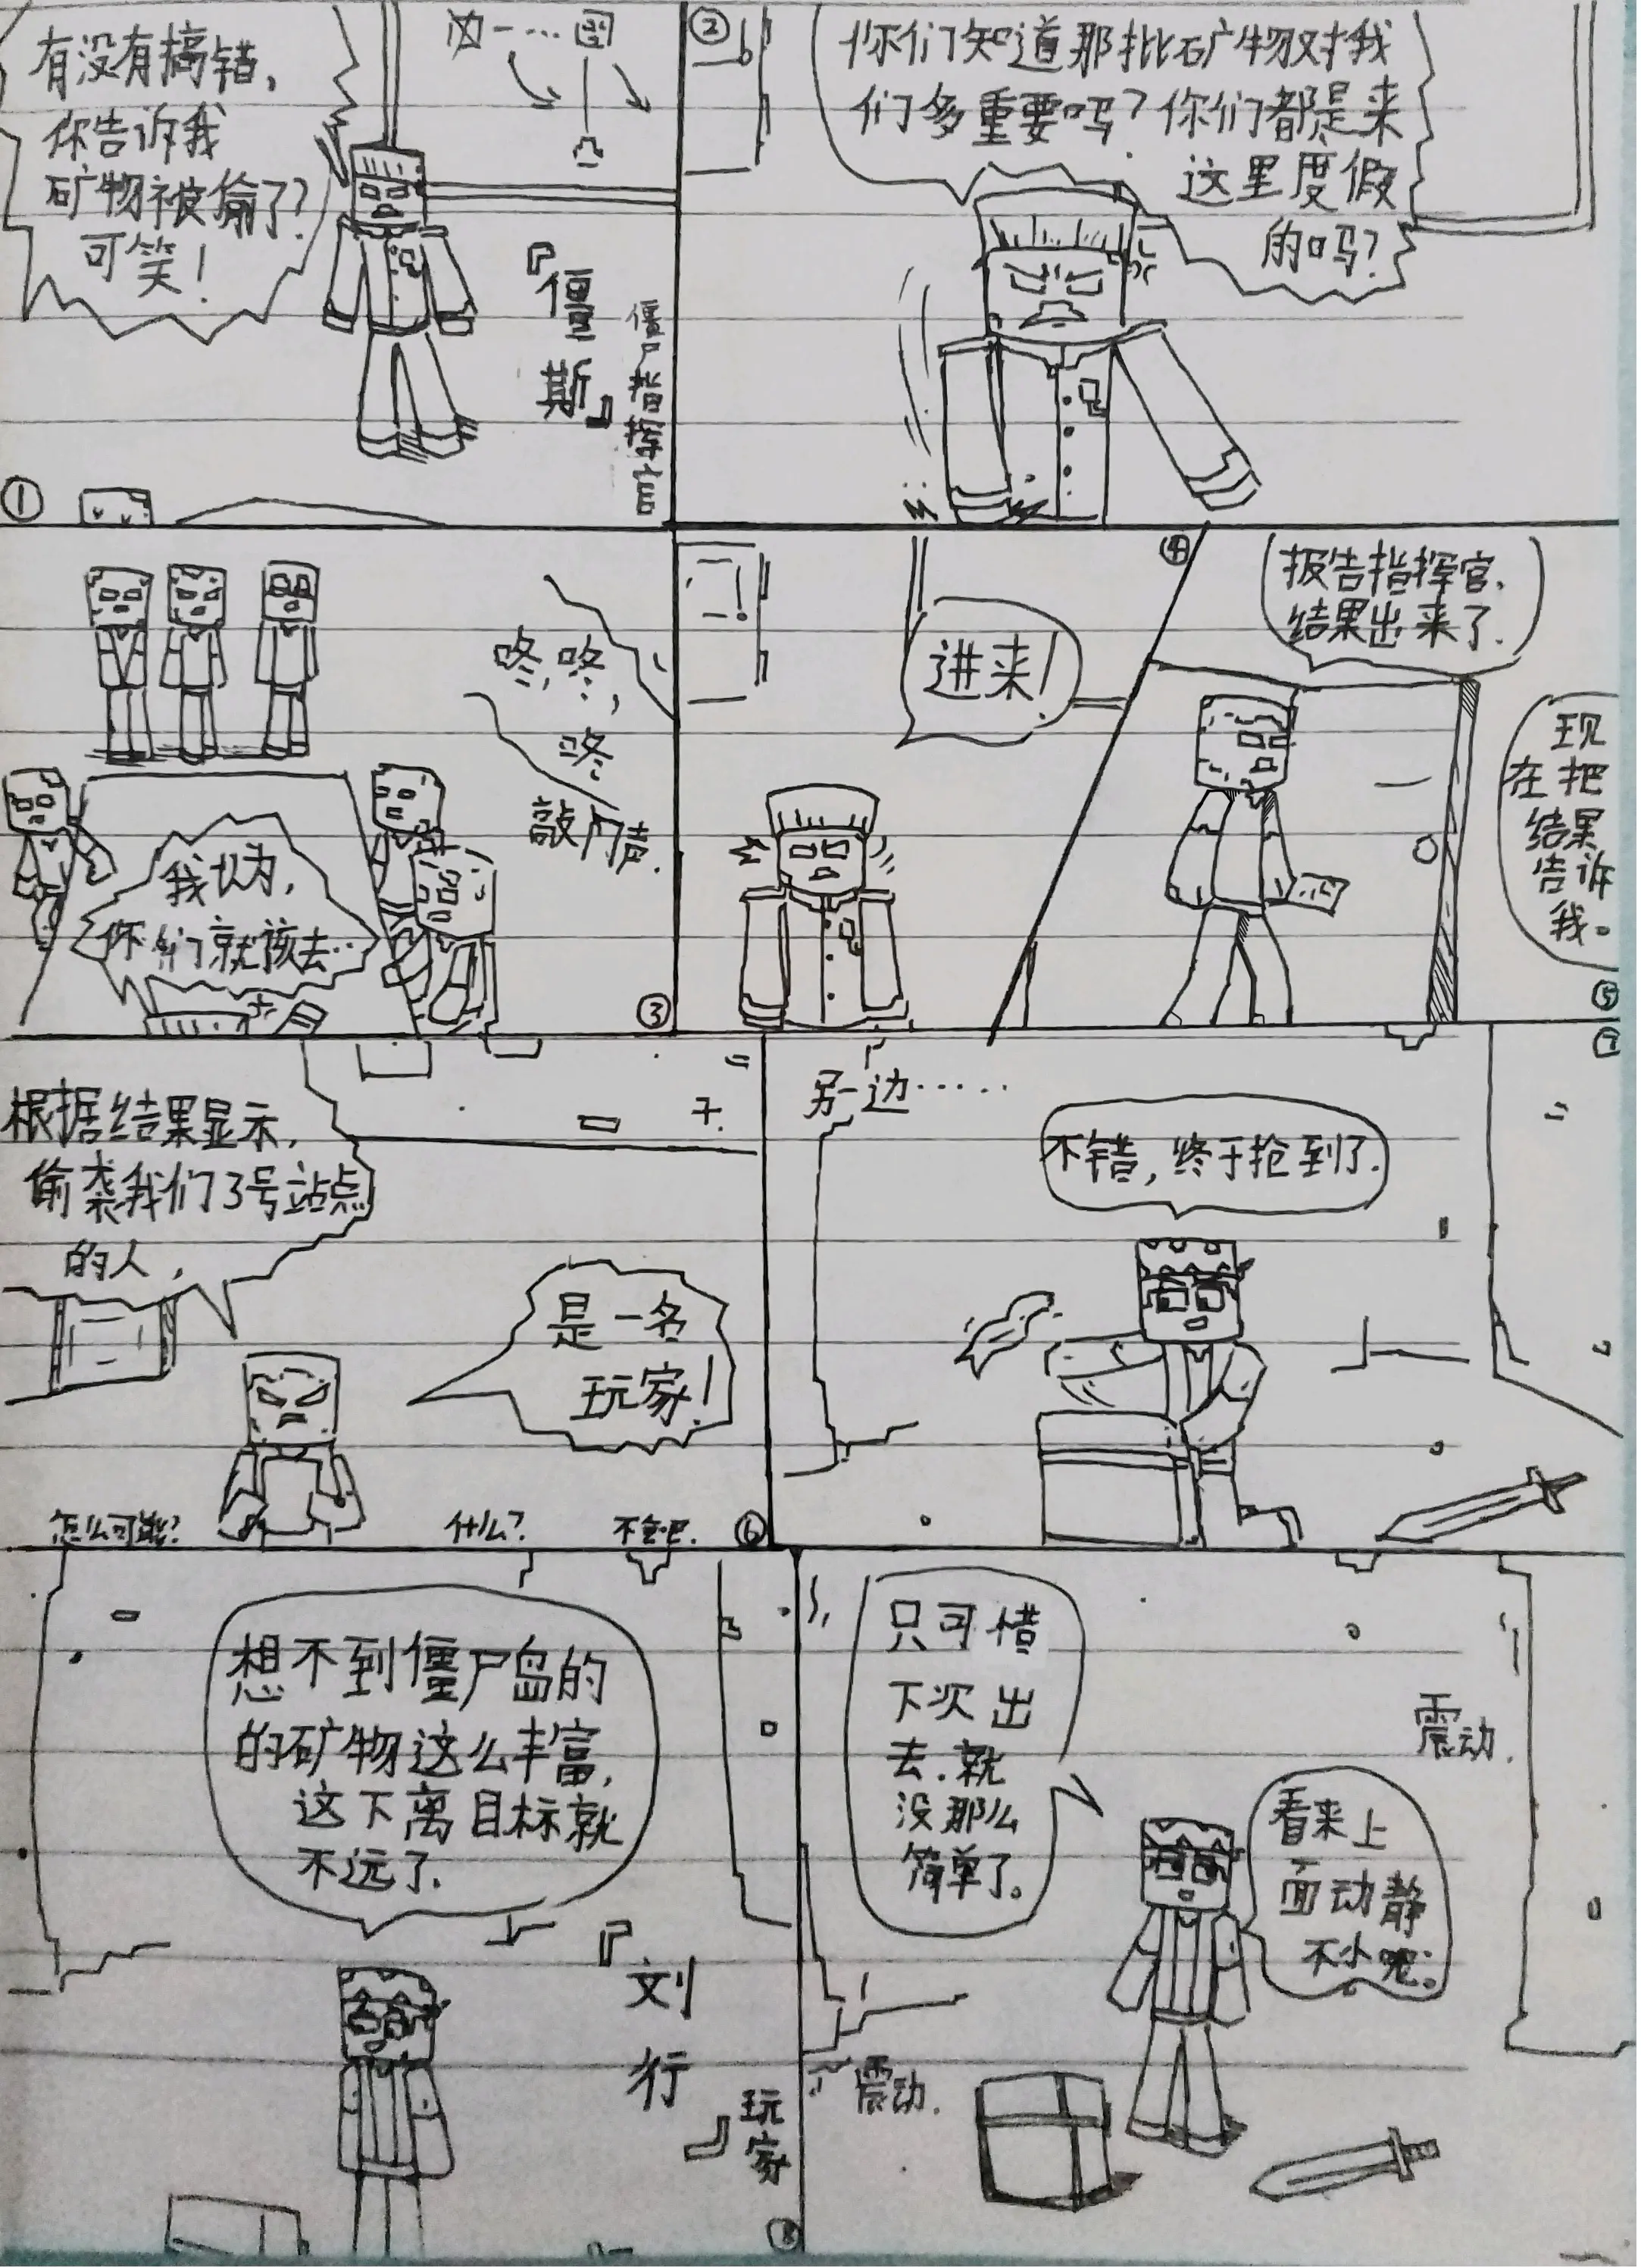 有没有搞错,
你告诉我
矿物被偷了?
可笑!
凶一…图
『僵斯』
僵尸指挥官
①
②
你们知道那批矿物对我
们多重要吗?你们都是来
这里度假
的吗?
咚,咚,
咚
敲门声.
我认为,
你们就该去…
③
④
进来!
报告指挥官.
结果出来了.
现
在把
结果
告诉
我。
⑤
根据结果显示,
偷袭我们3号站点
的人,
是一名
玩家!
怎么可能?
什么?
不会吧.
⑥
⑦
另一边……
不错,终于抢到了.
想不到僵尸岛的
的矿物这么丰富,
这下离目标就
不远了.
『刘行』
玩家
⑧
只可惜
下次出
去.就
没那么
简单了。
震动.
看来上
面动静
不小呢。
震动.